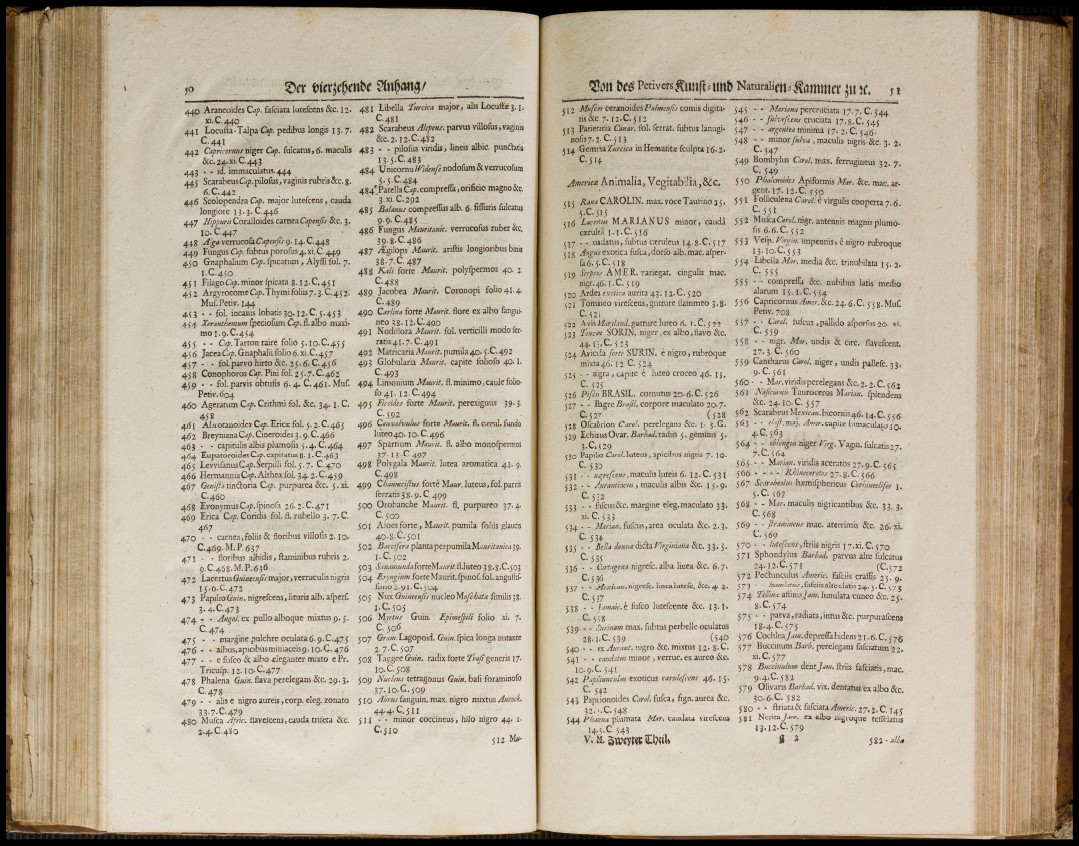 50 Der vierzehende Anhang/
440 Araneoides Cap. fasciata lutescens &c. 12.
xi. C. 440
441 Locusta-Talpa Cap. pedibus longis 13. 7.
C. 441
442 Capricornus niger Cap. sulcatus, 6. maculis
&c. 24. xi. C. 443
443 - - id. immaculatus. 444
445 Scarabeus Cap. pilosus, vaginis rubris &c. 8.
6. C. 442
446 Scolopendra Cap. major lutescens, cauda
longiore 13. 3. C. 446
447 Hippuris Coralloides carnea Capensis &c. 3.
10. C. 447
448 Alga verrucosa Capensis 9. 14. C. 448
449 Fungus Cap. subtus porosus 4. xi. C. 449
450 Gnaphalium Cap. spicatum, Alyssi fol. 7.
1. C. 450
451 Filago Cap. minor spicata 8. 12. C. 451
452 Argyrocome Cap. Thymi foliis 7. 3. C. 452.
Mus. Petiv. 144
453 - - fol. incanis lobatis 30. 12. C. 5. 453
454 Xeranthemum speciosum Cap. fl. albo maxi-
mo 1. 9. C. 454
455 - - Cap. Tarton raire folio 5. 10. C. 455
456 Jacea Cap. Gnaphalii folio 6. xi. C. 457
457 - - fol. parvo hirto &c. 25. 6. C. 456
458 Conophoros Cap. Pini fol. 25. 7. C. 462
459 - - fol. parvis obtusis 6. 4. C. 461. Mus.
Petiv. 604
460 Ageratum Cap. Crithmi fol. &c. 34. 1. C.
458
461 Alsotanoides Cap. Ericæ fol. 5. 2. C. 465
462 Breyniana Cap. Cineroides 3. 9. C. 466
463 - - capitulis albis plumosis 5. 4. C. 464
464 Eupatoroides Cap. capitatus 8. 1. C. 463
465 Levvisanus Cap. Serpilli fol. 5. 7. C. 470
466 Hermannia Cap. Altheæ fol. 34. 2. C. 459
467 Genista tinctoria Cap. purpurea &c. 5. xi.
C. 460
468 Evonymus Cap. spinosa 26. 2. C. 471
469 Erica Cap. Coridis fol. fl. rubello 3. 7. C.
467
470 - - carnea, foliis & floribus villosis 2. 10.
C. 469. M. P. 637
471 - - floribus albidis, staminibus rubris 2.
9. C. 468. M. P. 636
472 Lacertus Guineensis major, verruculis nigris
15. 9. C. 472
473 Papilio Guin. nigrescens, lituris alb. aspers.
3. 4. C. 473
474 - - Angol. ex pullo alboque mixtus 9. 5.
C. 474
475 - - margine pulchre oculata 6. 9. C. 475
476 - - albus, apicibus miniaceis 9. 10. C. 476
477 - - e fusco & albo eleganter mixto e Pr.
Tricusp. 12. 10. C. 477
478 Phalena Guin. flava perelegans &c. 29. 3.
C. 478
479 - - alis e nigro aureis, corp. eleg. zonato
33. 7. C. 479
480 Musca Afric. flavescens, cauda triseta &c.
2. 4. C. 480
481 Libella Turcica major, alis Locustæ 3. 1.
C. 481
482 Scarabeus Alepens. parvus villosus, vaginis
&c. 2. 12. C. 482
483 - - pilosus viridis, lineis albic. punctatis
13. 5. C. 483
484 Unicornu Widense nodosum & verrucosum
5. 5. C. 484
484* Patella Cap. compressa, orificio magno &c.
3. xi. C. 292
485 Balanus compressus alb. 6. fissuris sulcatus
9. 9. C. 485
486 Fungus Mauritanic. verrucosus ruber &c.
39. 8. C. 486
487 Ægilops Maurit. aristis longioribus binis
38. 7. C. 487
488 Kali forte Maurit. polyspermos 40. 2.
C. 488
489 Jacobea Maurit. Coronopi folio 41. 4.
C. 489
490 Carlina forte Maurit. flore ex albo sangui-
neo 38. 12. C. 490
491 Nodiflora Maurit. fol. verticilli modo ser-
ratis 41. 7. C. 491
492 Matricaria Maurit. pumila 40. 5. C. 492
493 Globularia Maurit. capite folioso 40. 1.
C. 493
494 Limonium Maurit. fl. minimo, caule folio-
so 41. 12. C. 494
495 Ficoides forte Maurit. perexiguus 39. 3.
C. 592
496 Convolvulus forte Maurit. fl. cærul. fundo
luteo 40. 10. C. 496
497 Spartum Maurit. fl. albo monospermos
37. 13. C. 497
498 Polygala Maurit. lutea aromatica 41. 9.
C. 498
499 Chamæcistus fortè Maur. luteus, fol. parvis
serratis 38. 9. C. 499
500 Orobanche Maurit. fl. purpureo 37. 4.
C. 500
501 Aloes forte, Maurit. pumila foliis glaucis
40. 8. C. 501
502 Baccifera planta perpumila Mauritanica 39.
1. C. 502
503 Sanamunda forte Maurit. fl. luteo 38. 8. C. 503
504 Eryngium forte Maurit. spinos. fol. angustis-
simo 2. 91. C. 504
505 Nux Guineensis nucleo Moschatæ similis 38.
1. C. 505
506 Myrtus Guin. Epimespili folio xi. 7.
C. 506
507 Gram. Lagopoid. Guin. spica longa nutante
2. 7. C. 507
508 Taggee Guin. radix forte Trasi generis 17.
10. C. 508
509 Nucleus tetragonus Guin. basi foraminoso
37. 10. G. 509
510 Abrus sanguin. max. nigro mixtus Ancock.
44. 4. C. 511
511 - - minor coccineus, hilo nigro 44. 1.
C. 510
512 Mu-
Von des Petivers Kunst- und Naturalien-Kammer zu ꝛc. 51
512 Muscus ceranoides Palmensis comis digita-
tis &c. 7. 12. C. 512
513 Parietria Canar. fol. serrat. subtus lanugi-
nosis 7. 2. C. 513
514 Gemma Turcica in Hematite sculpta 16. 2.
C. 514
Americæ Animalia, Vegitabilia, &c.
515 Rana CAROLIN. max. voce Taurino 25.
5. C. 515
516 Lacertus MARIANUS minor, caudâ
cæruleâ 1. 1. C. 516
517 - - undatus, subtus cæruleus 14. 8. C. 517
518 Angus exotica fusca, dorso alb. mac. asper-
sa 6. 5. C. 518
519 Serpens AMER. variegat. cingulis mac.
nigr. 46. 1. C. 519
520 Ardea exotica aurita 43. 12. C. 520
521 Tomineo virescens, gutture flammeo 3. 8.
C. 521
522 Avis Maryland. gutture luteo 6. 1. C. 522
523 Toucan SORIN. niger, ex albo, flavo &c.
44. 13. C. 523
524 Avicula forte SURIN. è nigro, rubròque
mixta 46. 12. C. 524
525 - - nigra, capite è luteo croceo 46. 13.
C. 525
526 Pisces BRASIL. cornutus 20. 6. C. 526
527 - - Bagre Brasil. corpore maculato 20. 7.
C. 527 (528
528 Ofcabrion Carol. perelegans &c. 1. 5. G.
529 Echinus Ovar. Barbad. radiis 5. geminis 5.
3. C. 529
530 Papilio Carol. luteus, apicibus nigris 7. 10.
C. 530
531 - - nigrescens, maculis luteis 6. 12. C. 531
532 - - Aurantiacus, maculis albis &c. 15. 9.
C. 532
533 - - fuscus &c. margine eleg. maculato 33.
xi. C. 533
534 - - Marian. fuscus, area oculata &c. 2. 3.
C. 534
535 - - Bella donna dicta Virginiana &c. 33. 5.
C. 535
536 - - Cartagena nigresc. alba linea &c. 6. 7.
C. 536
537 - - Mexican. nigresc. linea lutesc. &c. 4. 2.
C. 537
538 - - Jamaic. è fusco lutescente &c. 13. 1.
C. 538
539 - - Surinam max. subtus perbelle oculatus
28. 1. C. 539 (540
540 - - ex Aurant. nigro &c. mixtus 12. 8. C.
541 - - caudatus minor, verruc. ex aureo &c.
10. 9. C. 541
542 Papiliunculus exoticus cærulescens 46. 15.
C. 542
543 Papilionoides Carol. fusca, sign. aurea &c.
32. 5. C. 548
544 Phalena plumata Mar. caudata virescens
14. 5. C. 543
V. M. Zweyter Theil.
545 - - Mariana percruciata 17. 7. C. 544
546 - - fulvescens cruciata 17. 8. C. 545
547 - - argentea minima 17. 2. C. 546
548 - - minor fulva, maculis nigris &c. 3. 2.
C. 547
549 Bombylus Carol. max. ferrugineus 32. 7.
C. 549
550 Phalenoides Apiformis Mar. &c. mac. ar-
gent. 17. 12. C. 550
551 Folliculena Carol. è virgulis cooperta 7. 6.
C. 551
552 Musca Carol. nigr. antennis magnis plumo-
sis 6. 6. C. 552
553 Vesp. Virgin. impennis, è nigro rubroque
13. 10. C. 553
554 Libella Mar. media &c. trinubilata 15. 2.
C. 555
555 - - compressa &c. nubibus latis medio
alarum 15. 1. C. 554
556 Capricornus Amer. &c. 24. 6. C. 558. Mus.
Petiv. 708
557 - - Carol. fuscus, pallido aspersus 20. xi.
C. 559
558 - - nigr. Mar. undis & circ. flavescent.
27. 3. C. 560
559 Cantharus Carol. niger, undis pallesc. 33.
9. C. 561
560 - - Mar. viridis perelegans &c. 2. 2. C. 562
561 Nasicornis Tauroceros Marian. splendens
&c. 24. 10. C. 557
562 Scarabeus Mexican. bicornis 46. 14. C. 556
563 - - elast. maj. Amer. capite bimaculato 10.
4. C. 563
564 - - oblongus niger Virg. Vagin. sulcatis 27.
7. C. 564
565 - - Marian. viridis aceratos 27. 9. C. 565
566 - - - - Rhinoceratos 27. 8. C. 566
567 Scarabeolus hæmisphericus Cochineelifer 1.
5. C. 567
568 - - Mar. maculis nigricantibus &c. 33. 3.
C. 568
569 - - stramineus mac. aterrimis &c. 26. xi.
C. 569
570 - - lutescens, striis nigris 17. xi. C. 570
571 Sphondylus Barbad. parvus alte sulcatus
24. 12. C. 571 (C. 572
572 Pectunculus Americ. fasciis crassis 25. 9.
573 - - fasciis alte elatis 24. 5. C. 573
574 Tellinæ affinis Jam. lunulata cuneo &c. 25.
8. C. 574
575 - - parva, radiata, intus &c. purpurascens
18. 4. C. 575
576 Cochlea Jam. depressa bidens 21. 6. C. 576
577 Buccinum Barb. perelegans fasciatum 22.
xi. C. 577
578 Buccinulum dent Jam. striis fasciatis, mac.
9. 4. C. 582
579 Olivaris Barbad. vix. dentatus ex albo &c.
30. 6. C. 582
580 - - striata & fasciata Americ. 27. 2. C. 145
581 Nerita Jam. ex albo nigroque tesselatus
13. 12. C. 579
582 - alba